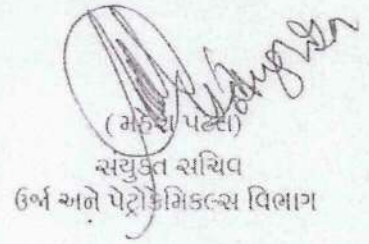 (મહેશ પટેલ)
સંયુક્ત સચિવ
ઉર્જા અને પેટ્રોકેમિકલ્સ વિભાગ